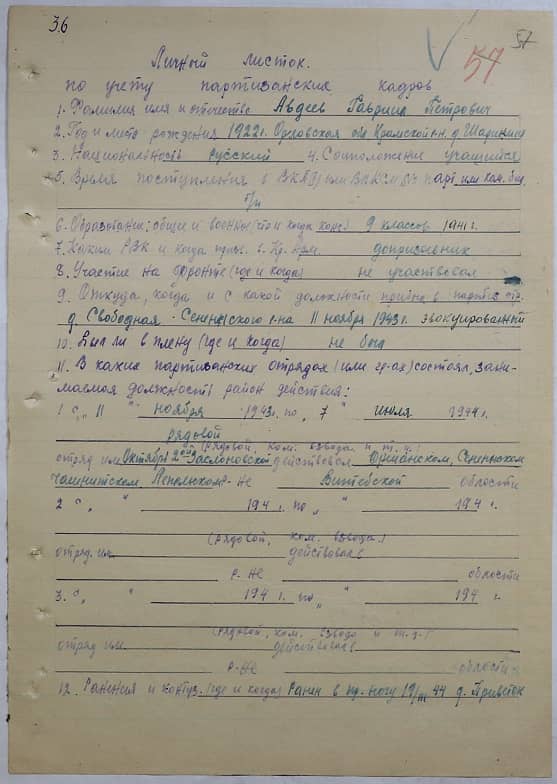 36
57
57
Личный листок.
по учету партизанских кадров
1. Фамилия имя и отчество Авдеев Гавриил Петрович
2. Год и место рождения 1922г. Орловская обл Кромской р-н. д.
3. Национальность русский 4. Соцположение учащийся
5. Время поступления в ВКП(б) или ВЛКСМ № парт. или ком. бил.
б/п
6. Образование: общее и военное (что и когда 9 классов 1941г.
7. Каким РВК и когда приз. в Кр. Арм. допризывник
8. Участие на фронте (где и когда) не участвовал
9. Откуда, когда и с какой должности принят в партиз. отр.
д. Свободная Сенненского р-на 11 ноября 1943г. эвакуированный
10. Был ли в плену (где и когда) не был
11. В каких партизанских отрядах (или гр-ах) состоял, зани-
маемая должность район действия:
1 с „ 11 " ноября 1943г. по „ 7 " июля 1944г.
рядовой
(рядовой, ком. взвода и т. д.)
отряд им Октября 2ой Заслоновской действовал Оршанском, Сенненском
Чашникском, Лепельском р-не Витебской области
2 с „ " 194 г. по „ " 194 г.
(рядовой, ком. взвода.)
отряд. им. действовал
р-не области
3. с „ " 194 г. по „ " 194 г.
(рядовой, ком. взвода и т. д.)
отряд им. действовал
р-не области
12. Ранения и контуз. (где и когда) Ранен в пр. ногу 19/III 44 д.